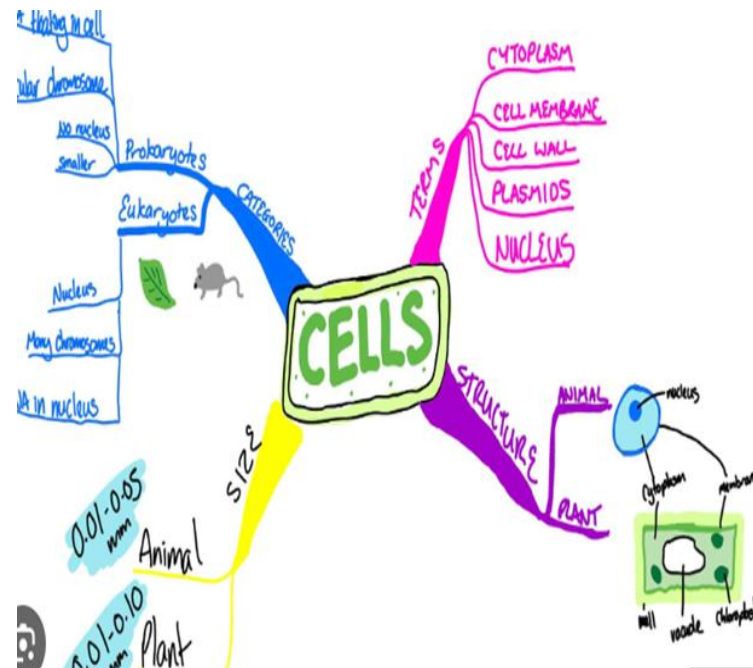 floating in cell
ular chromosome
No nucleus
smaller
Prokaryotes
Eukaryotes
CATEGORIES
Nucleus
Many chromosomes
A in nucleus
TERMS
CYTOPLASM
CELL MEMBRANE
CELL WALL
PLASMIDS
NUCLEUS
CELLS
STRUCTURE
ANIMAL
nucleus
cytoplasm
membran
PLANT
wall
vacuole
chloroplas
SIZE
0.01-0.05
mm
Animal
0.01-0.10
mm
Plant